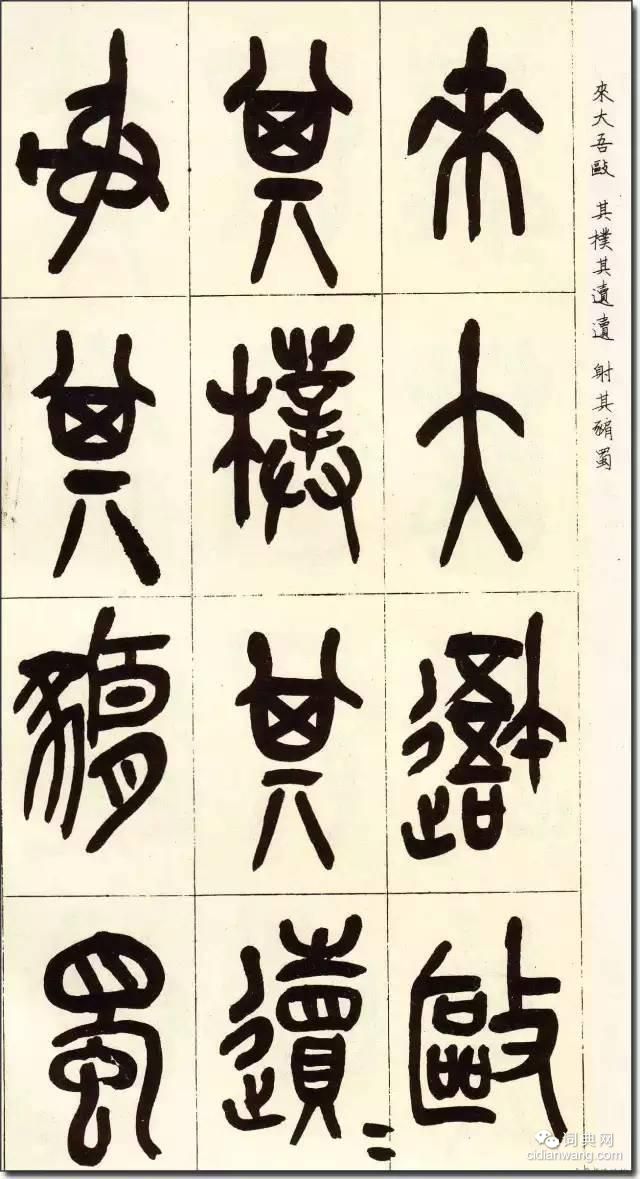 來大吾敺 其樸其 射其蜀
來大敺
其樸其
射其蜀
词典网
cidianwang.com